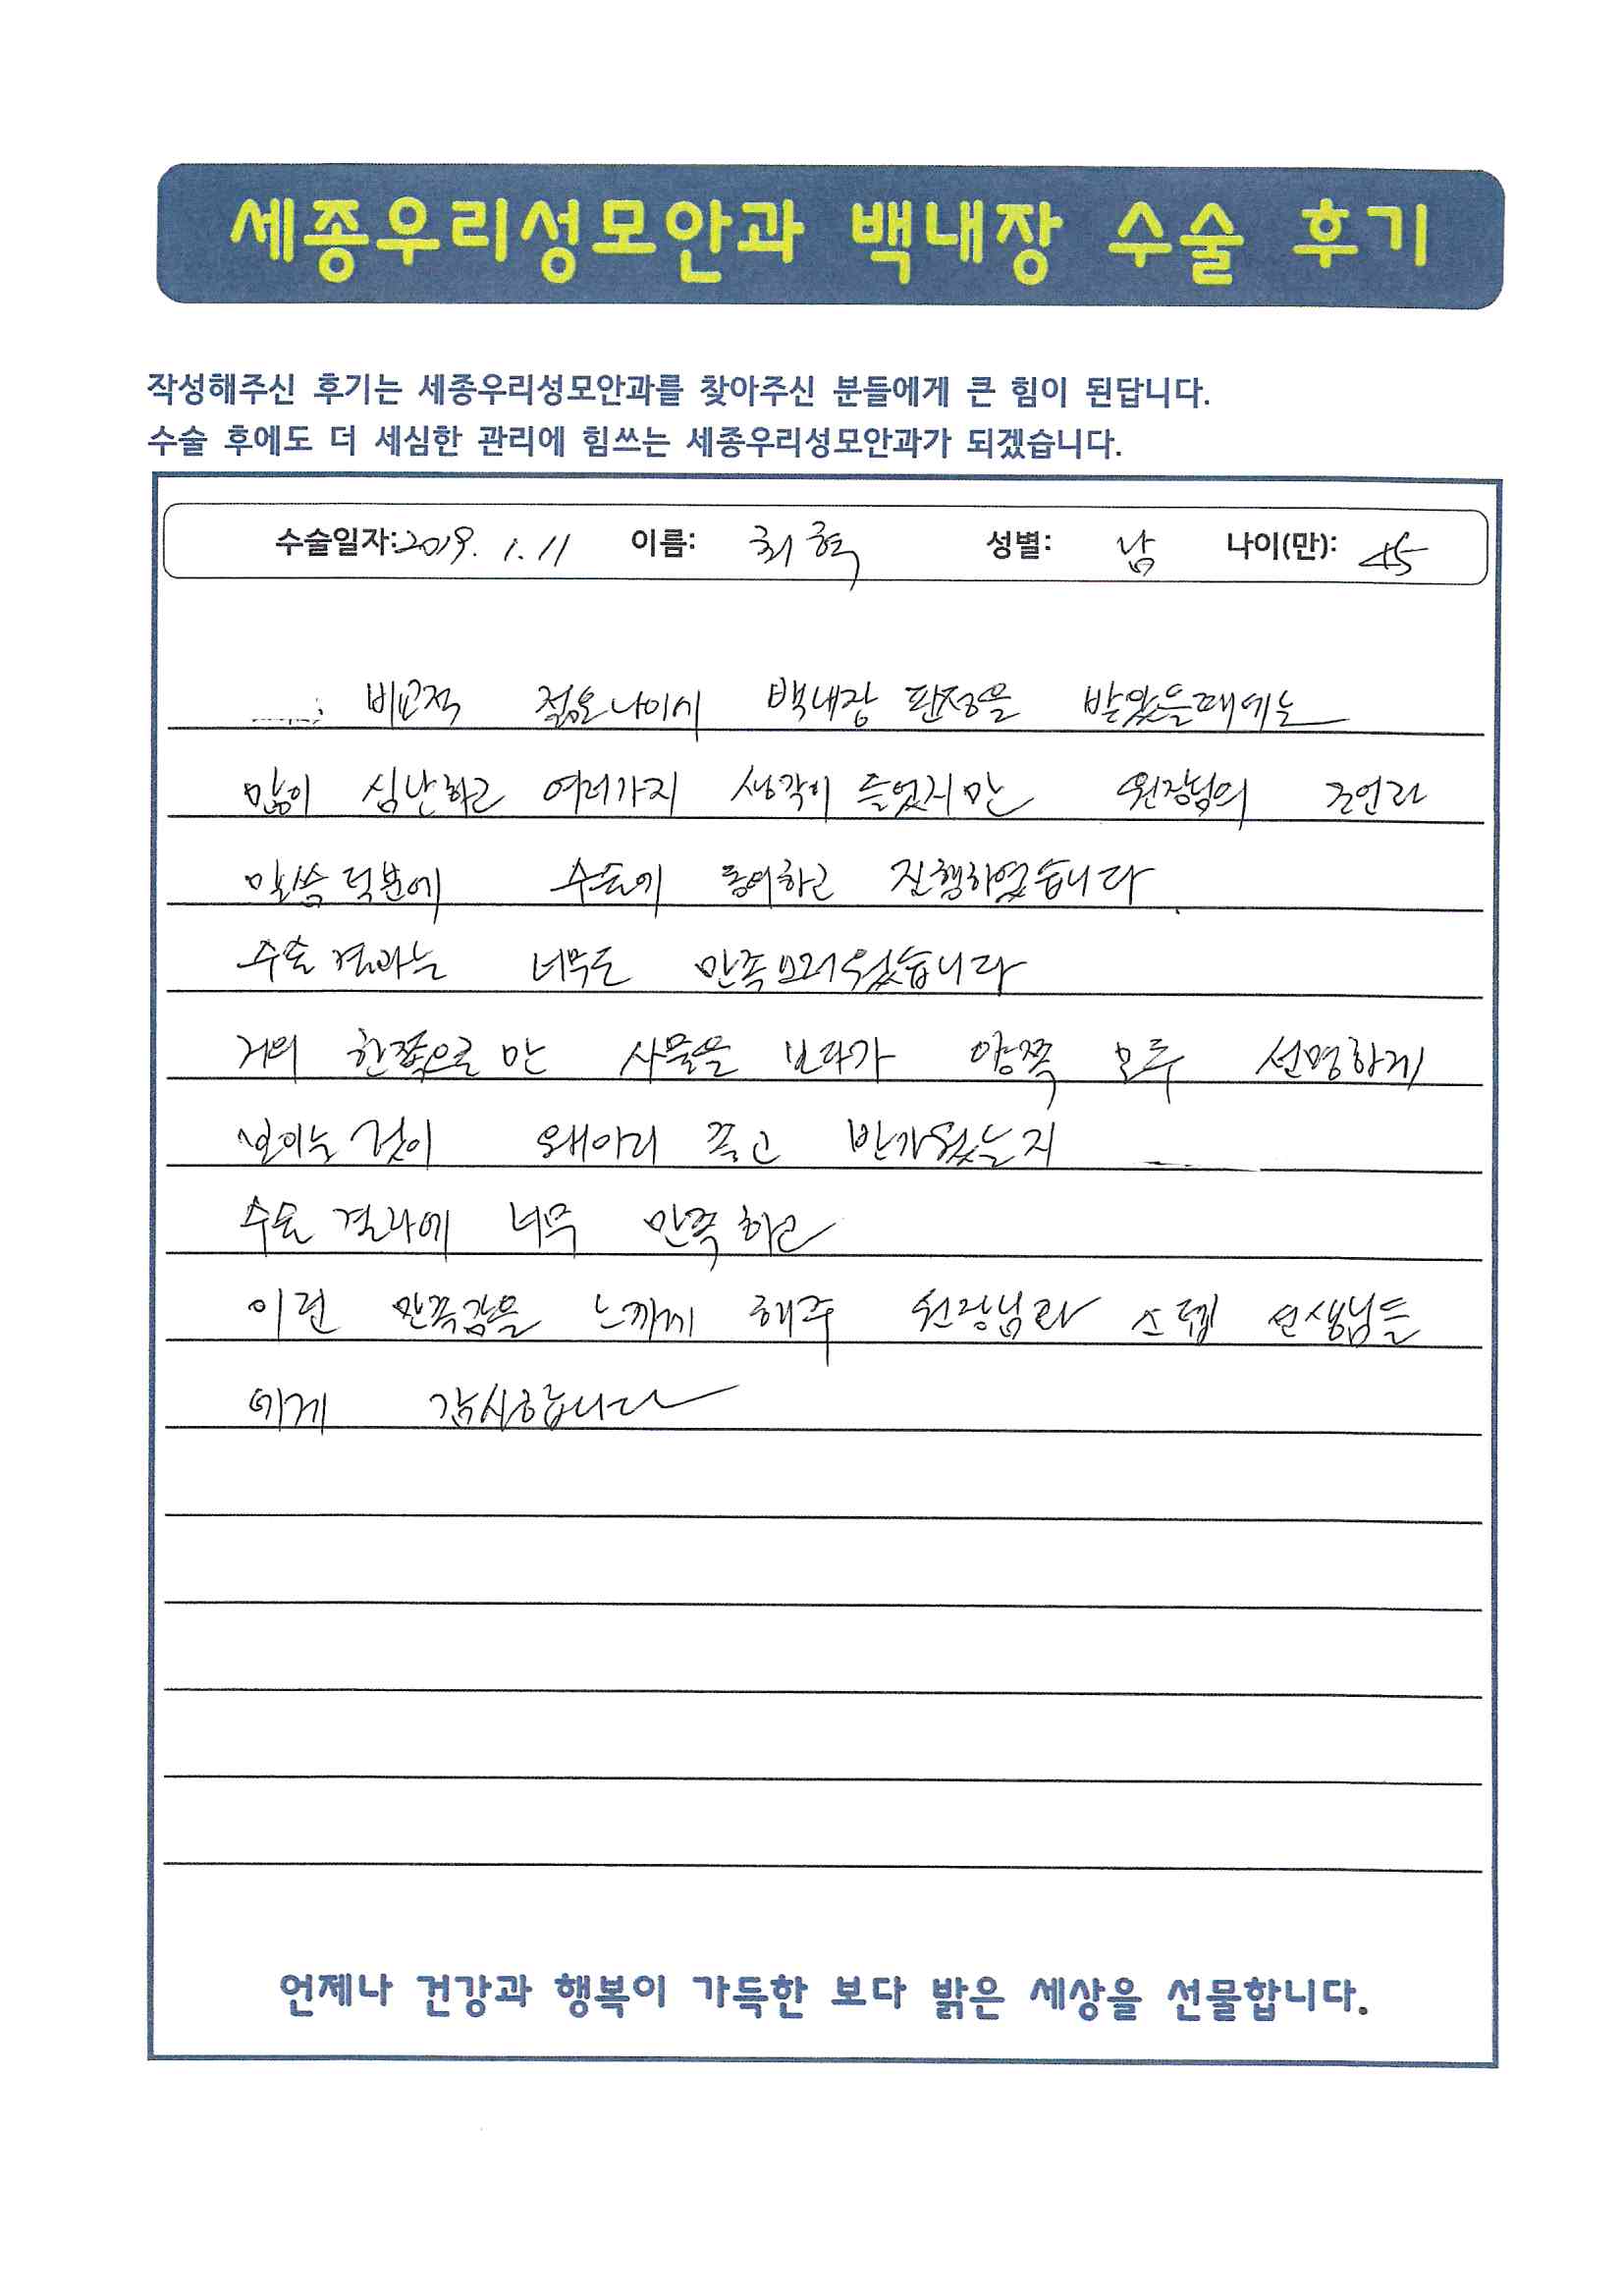 세종우리성모안과 백내장 수술 후기
작성해주신 후기는 세종우리성모안과를 찾아주신 분들에게 큰 힘이 된답니다.
수술 후에도 더 세심한 관리에 힘쓰는 세종우리성모안과가 되겠습니다.
수술일자: 2019. 1. 11 이름: 최혁 성별: 남 나이(만): 45
비교적 젊은나이에 백내장 판정을 받았을때에는
많이 심난하고 여러가지 생각이 들었지만 원장님의 조언과
말씀 덕분에 수술에 동의하고 진행하였습니다
수술 결과는 너무도 만족스러웠습니다
거의 한쪽으로만 사물을 보다가 양쪽 모두 선명하게
보이는 것이 왜이리 좋고 반가웠는지
수술 결과에 너무 만족하고
이런 만족감을 느끼게 해주 원장님과 스텝 선생님들
에게 감사합니다
언제나 건강과 행복이 가득한 보다 밝은 세상을 선물합니다.